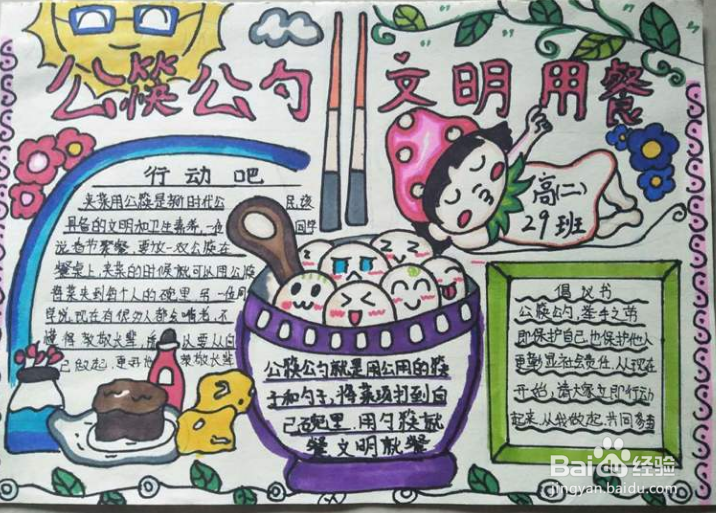 公筷公勺 文明用餐
行动吧
夹菜用公筷是新时代公民该
具备的文明和卫生素养,一位同学
说,春节聚餐,要放一双公筷在
餐桌上,夹菜的时候就可以用公筷
将菜夹到每个人的碗里.另一位同
学说,现在有很多人都
懂得 孝敬长辈,
己做起,
孝敬长辈
高(二)
29班
公筷公勺就是用公用的筷
子和勺子,将菜项打到自
己碗里,用勺筷就
餐 文明就餐
倡议书
公筷公勺,举手之劳
即保护自己,也保护他人
更彰显社会责任.从现在
开始,请大家立即行动
起来.从我做起.共同
Baidu 经验
jingyan.baidu.com